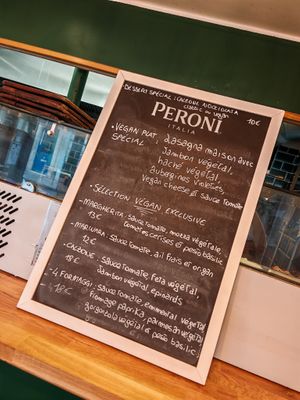 DESSERT SPECIAL: CALZONE NOCCIOLATA
CLASSIC ou vegan 10€
PERONI
ITALIA
• VEGAN PLAT SPECIAL: Lasagna maison avec
Jambon vegetal,
haché vegetal,
aubergines violette,
vegan cheese & sauce tomate
- SELECTION VEGAN EXCLUSIVE
- MARGHERITA: sauce tomate, mozza vegetale,
13€ tomates cerises & pesto basilic
- MARINARA: sauce tomate, ail frais et origan
12€
- CALZONE: sauce tomate, feta vegetal,
18€ Jambon vegetal, epinards
- 4 FORMAGGI: sauce tomate, emmental végétal
18€ fromage paprika, parmesan vegetal
gorgonzola vegetal & pesto basilic